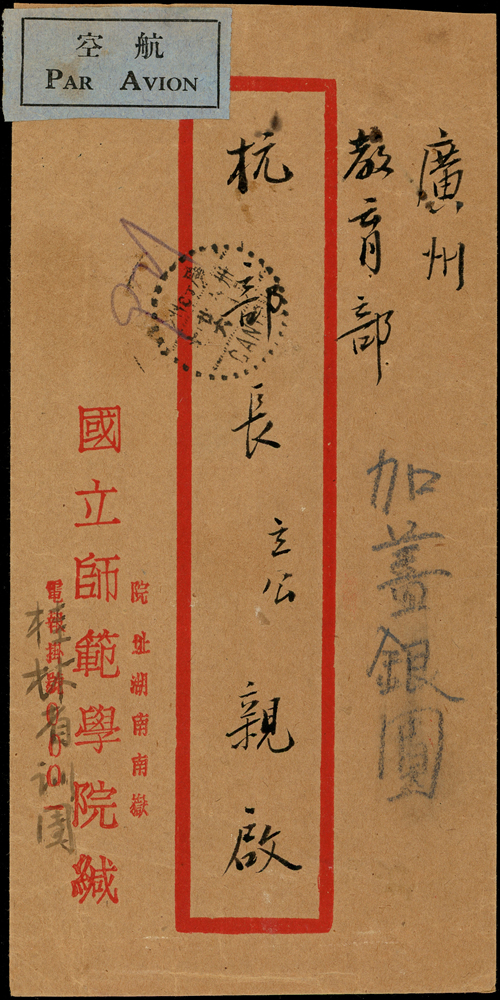 航空
PAR AVION
廣州
教育部
杭部長立公親啟
加蓋銀圓
院址湖南南嶽
國立師範學院緘
電報掛號
桂林
CAN